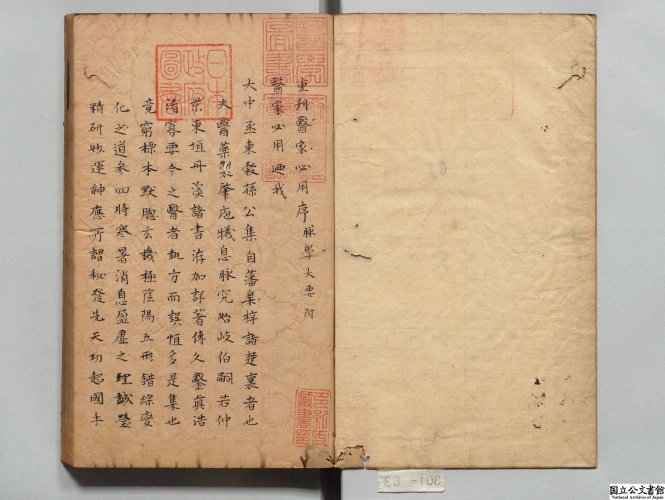 重刋醫家必用序 脉學大要附
醫家必用廼我
大中丞東穀孫公集自藩臬梓諸楚襄者也
夫醫藥剏肇庖犧息脉究始岐伯嗣若仲
景東垣丹溪諸書浮加詳著傳久鑿真浩
渚寡要今之醫者執方而誤恒多是集也
竟窮標本默膨玄機極陰陽五形錯綜變
化之道參四時寒暑消息盈虛之理誠瑩
精研妙運神應所謂秘發先天功超國手
日本
政府
圖書
301-
国立公文書館
National Archives of Japan